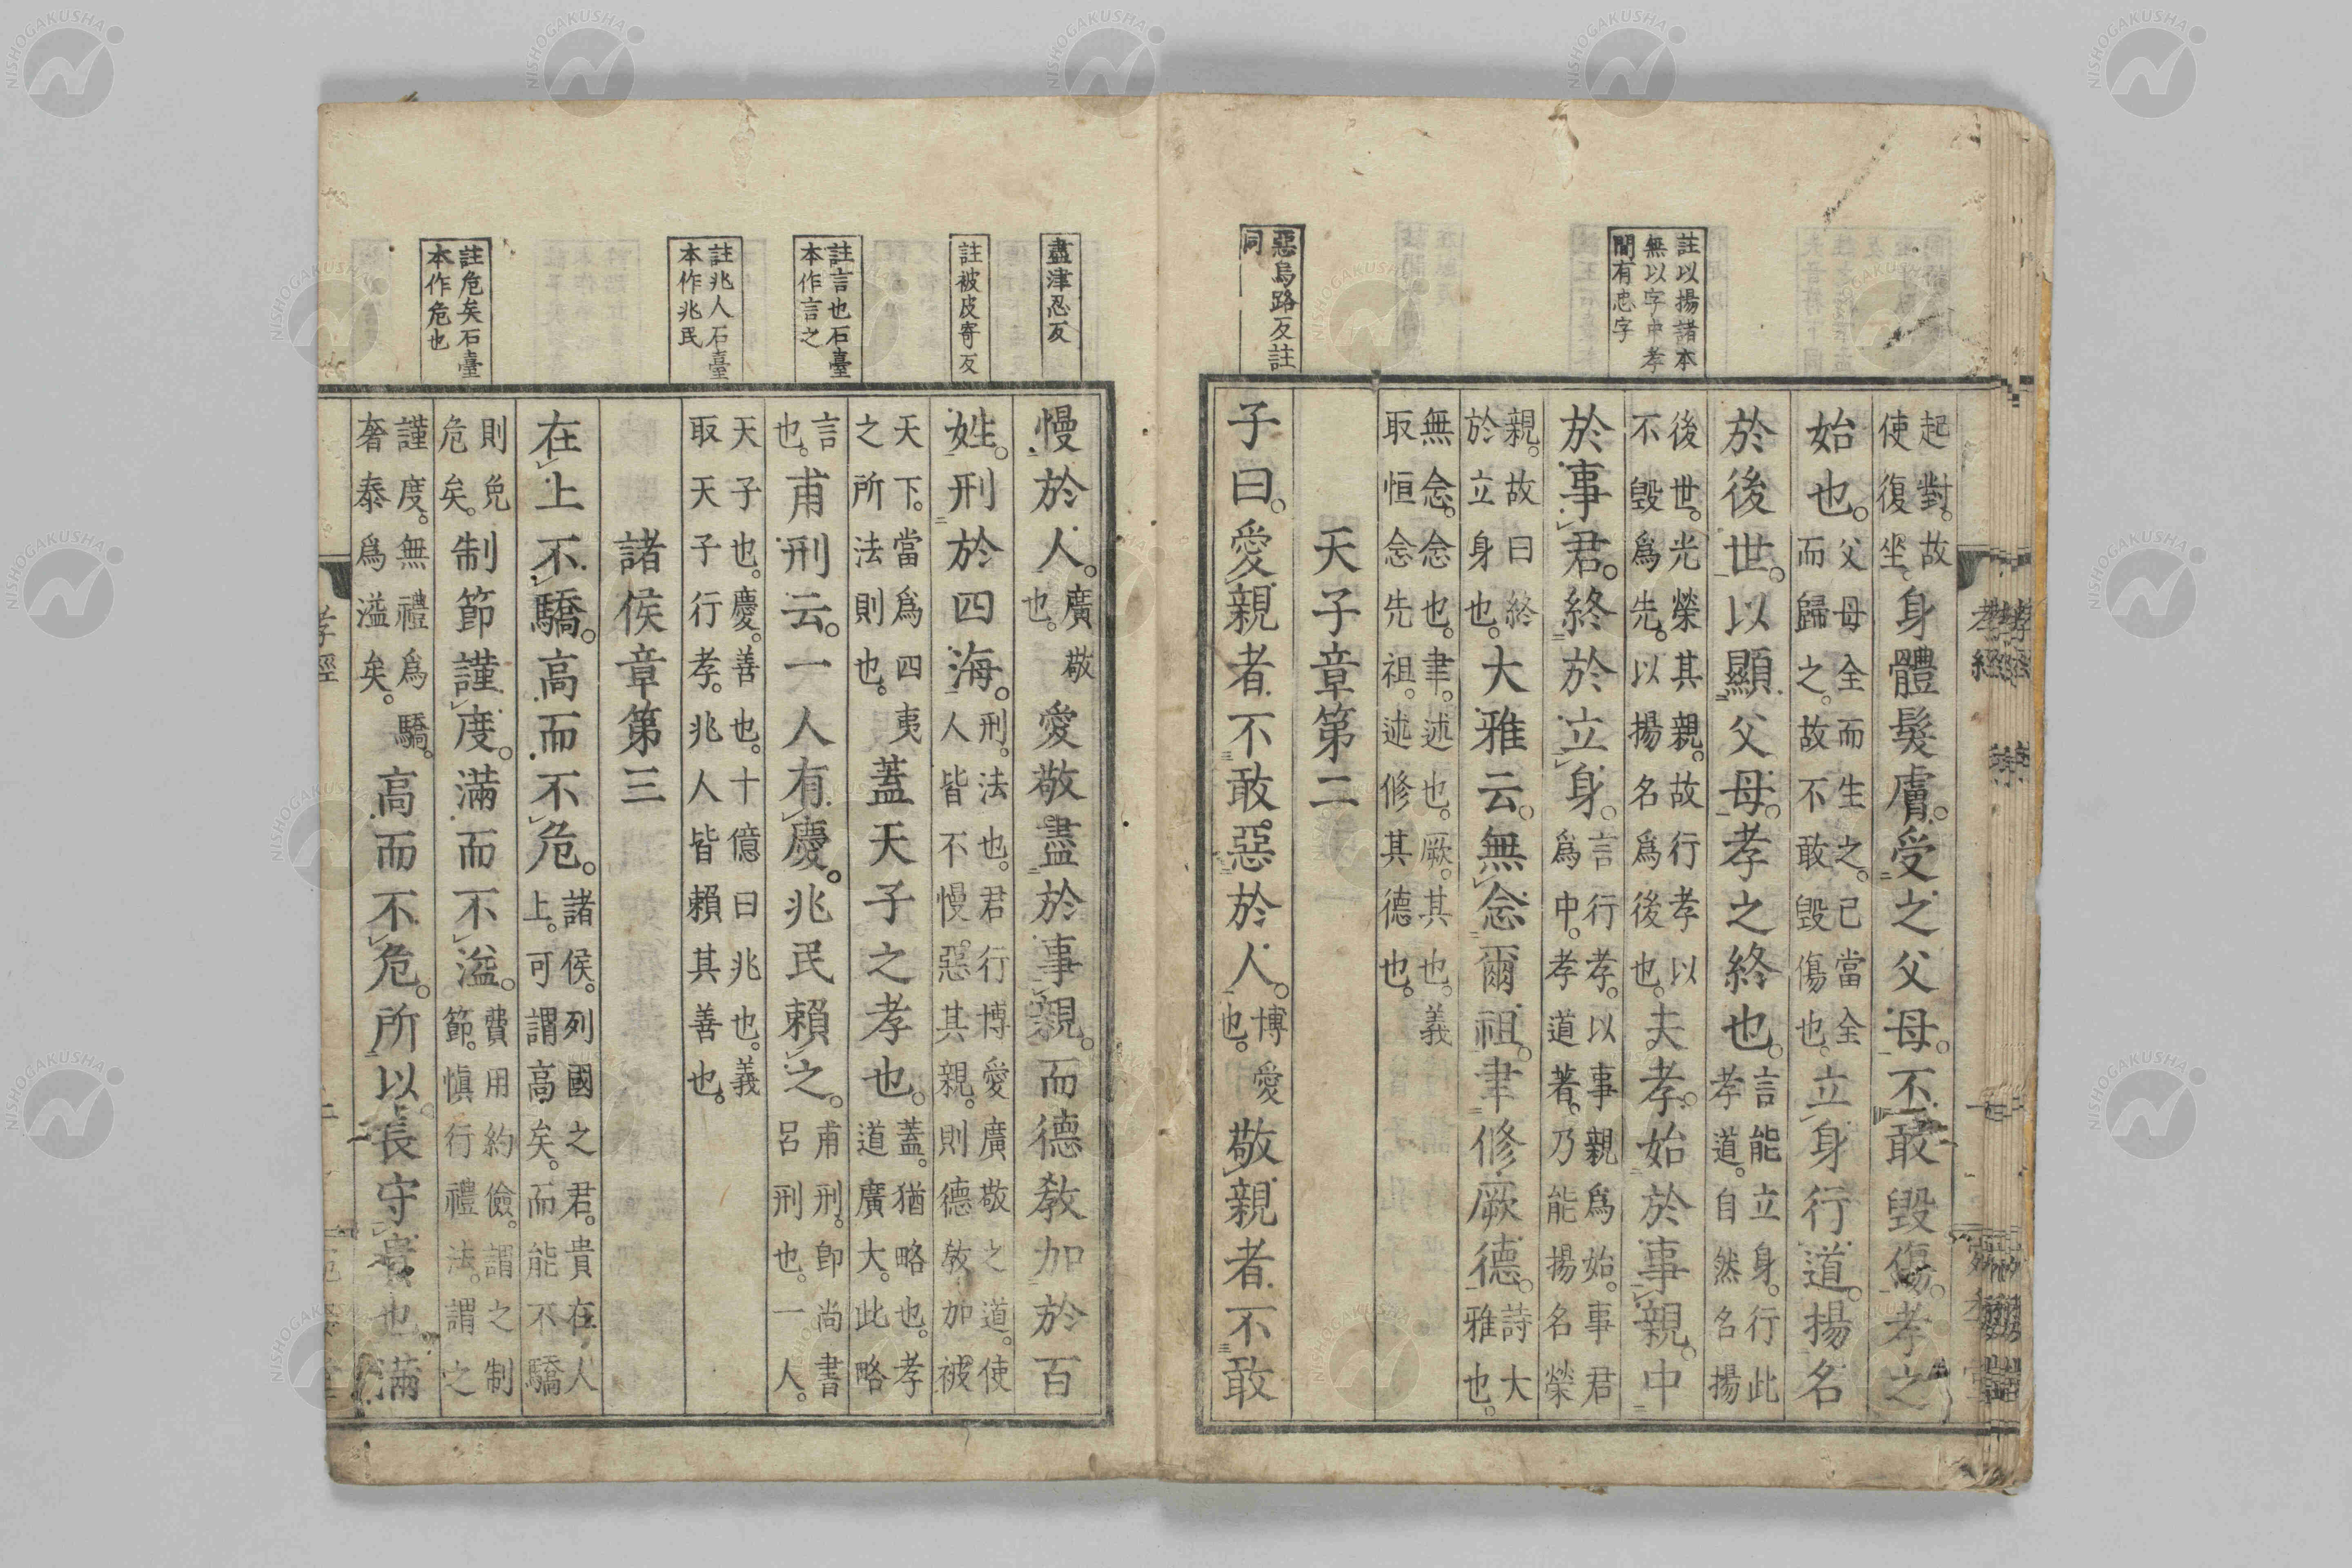 註以揚諸本
無以字中孝
間有忠字
惡烏路反註
同
起對。故
使復坐。身體髮膚。受之父母。不敢毀傷。孝之
始也。父母全而生之。己當全
而歸之。故不敢毀傷也。立身行道。揚名
於後世。以顯父母。孝之終也。言能立身。行此
孝道。自然名揚
後世。光榮其親。故行孝以
不毀爲先。以揚名爲後也。夫孝。始於事親。中
於事君。終於立身。言行孝。以事親爲始。事君
爲中。孝道著。乃能揚名榮
親。故曰終
於立身也。大雅云。無念爾祖。聿修厥德。詩大
雅也。
無念。念也。聿。述也。厥。其也。義
取恒念先祖。述修其德也。
天子章第二
子曰。愛親者不敢惡於人。博愛
也。敬親者不敢
盡津忍反
註被皮寄反
註言也石臺
本作言之
註兆人石臺
本作兆民
註危矣石臺
本作危也
慢於人。廣敬
也。愛敬盡於事親。而德教加於百
姓。刑於四海。刑。法也。君行博愛廣敬之道。使
人皆不慢惡其親。則德敎加被
天下。當爲四夷
之所法則也。蓋天子之孝也。蓋。猶略也。孝
道廣大。此略
言
也。甫刑云。一人有慶。兆民賴之。甫刑。即尚書
呂刑也。一人。
天子也。慶。善也。十億曰兆也。義
取天子行孝。兆人皆賴其善也。
諸侯章第三
在上不驕。高而不危。諸侯。列國之君。貴在人
上。可謂高矣。而能不驕
則免
危矣。制節謹度。滿而不溢。費用約儉。謂之制
節。愼行禮法。謂之
謹度。無禮爲驕。
奢泰爲溢矣。高而不危。所以長守貴也滿
孝經